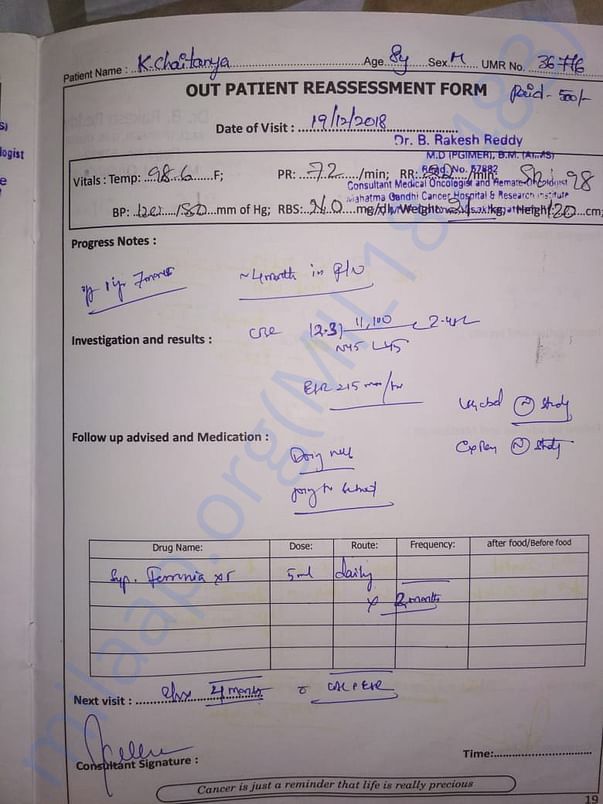 Patient Name : K. Chaitanya Age 8y Sex M UMR No. 36776
OUT PATIENT REASSESSMENT FORM Paid - 500/-
Date of Visit : 19/12/2018
Dr. B. Rakesh Reddy
M.D (PGIMER), D.M. (AIIMS)
Read. No. 57882
Consultant Medical Oncologist and Hemato Oncologist
Mahatma Gandhi Cancer Hospital & Research Institute
Vitals : Temp: 98.6 F; PR: 72 /min; RR: /min; 98
BP: mm of Hg; RBS: mg/dl; Weight: 21 kg; Height 120 cm;
Progress Notes :
7 months ~4 month in
Investigation and results : 12.3 11,100 2.4
N45 L45
ESR 215 mm/hr
study
Follow up advised and Medication : study
Doing well
going to school
Drug Name: Dose: Route: Frequency: after food/Before food
Syp. XT 5ml daily
x 2 months
Next visit : 4 months
Consultant Signature : Time:
Cancer is just a reminder that life is really precious
19
milaap.org